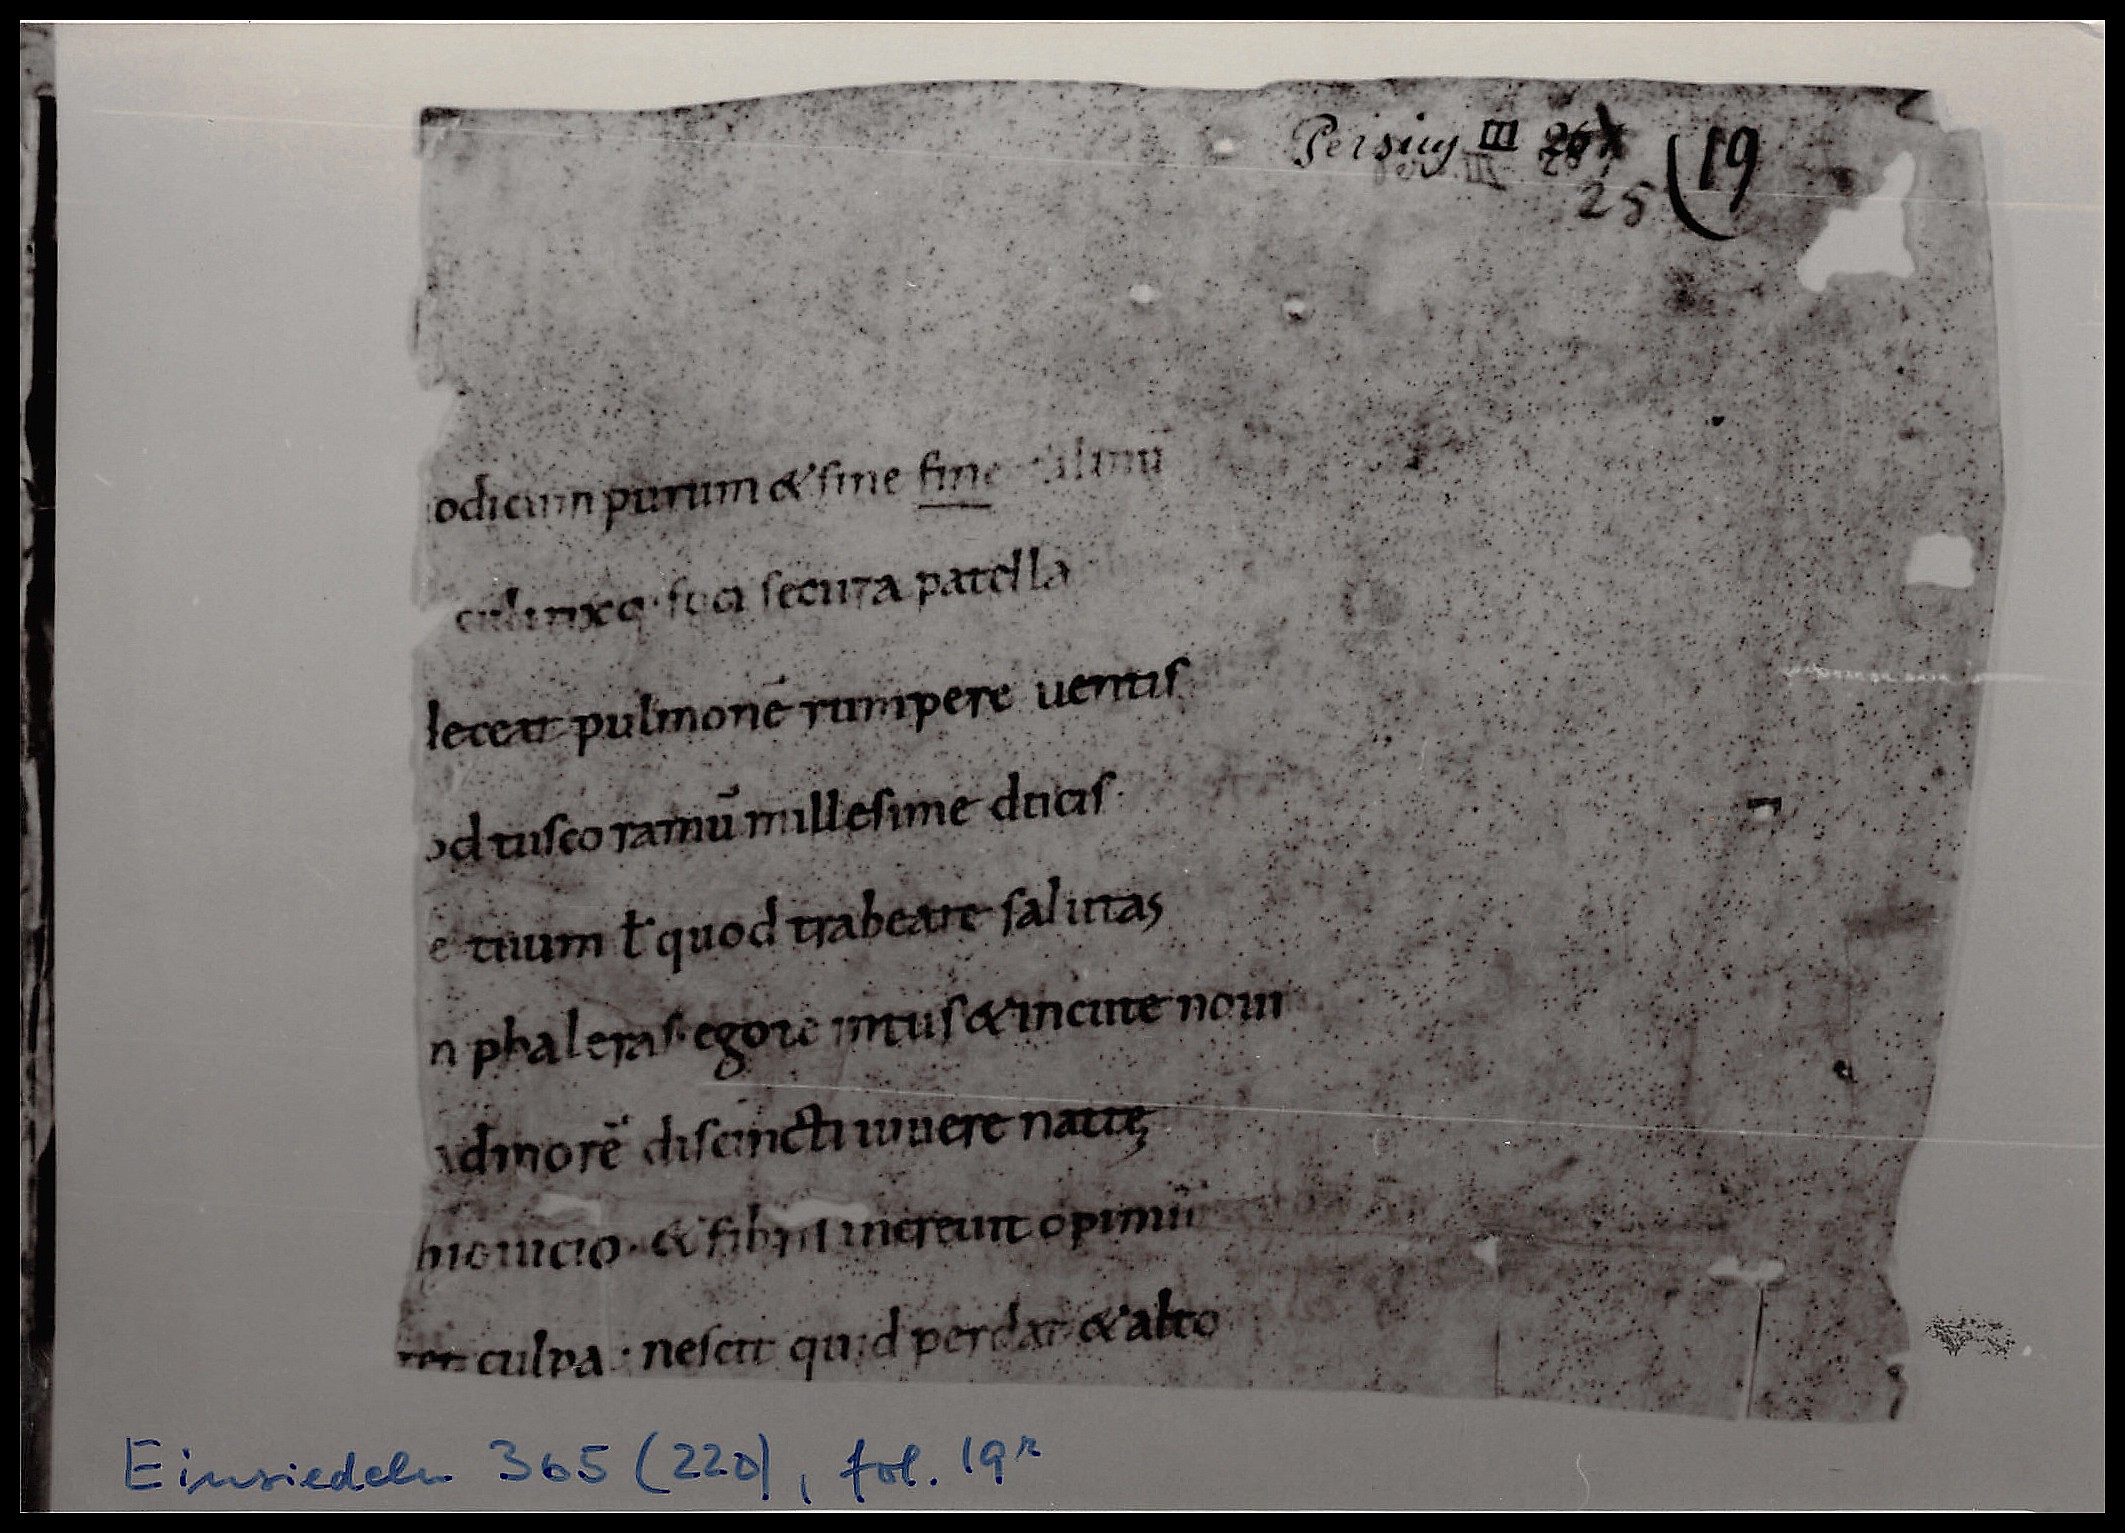 Persius III 26 (19
Pers. III 25
25
odicum purum & sine fine salinu
cultrixq· foci secura patella
leceat pulmonē rumpere uentis
od tusco ramū millesime ducis·
e tuum ł quod trabeate salutas
n phaleras· ego te intus & in cute noui
ad morē discincti uiuere nattę
hic uicio· & fibris increuit opimū
ret culpa· nescit quid perdat & alto
Einsiedeln 365 (220), fol. 19r